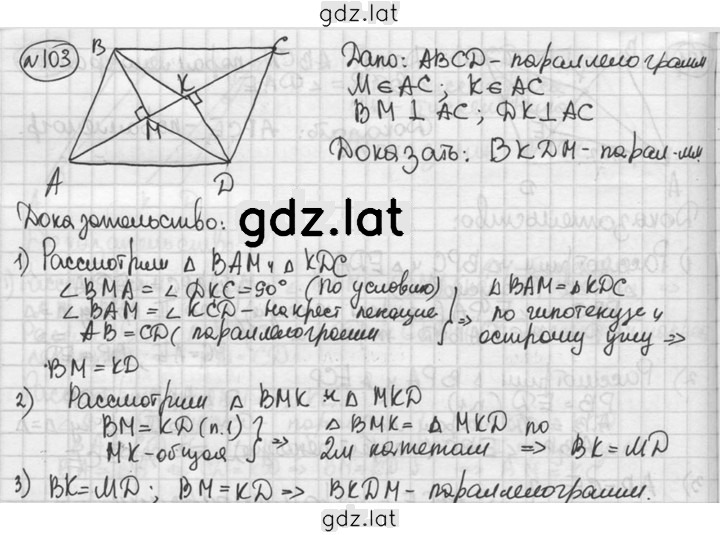 gdz.lat
№103
B
C
K
M
A
D
Дано: ABCD - параллелограмм
M∈AC; K∈AC
BM ⊥ AC; DK⊥AC
Доказать: BKDM - парал-мм
Доказательство:
gdz.lat
1) Рассмотрим △ BAM и △ KDC
∠BMA = ∠DKC = 90° (по условию)
∠BAM = ∠KCD - накрест лежащие
AB = CD ( параллелограмм
} ⇒
△ BAM = △KDC
по гипотенузе и
острому углу ⇒
BM = KD
2) Рассмотрим △ BMK и △ MKD
BM = KD (п.1)
MK - общая
} ⇒
△ BMK = △ MKD по
2м катетам ⇒ BK = MD
3) BK = MD; BM = KD ⇒ BKDM - параллелограмм.
gdz.lat